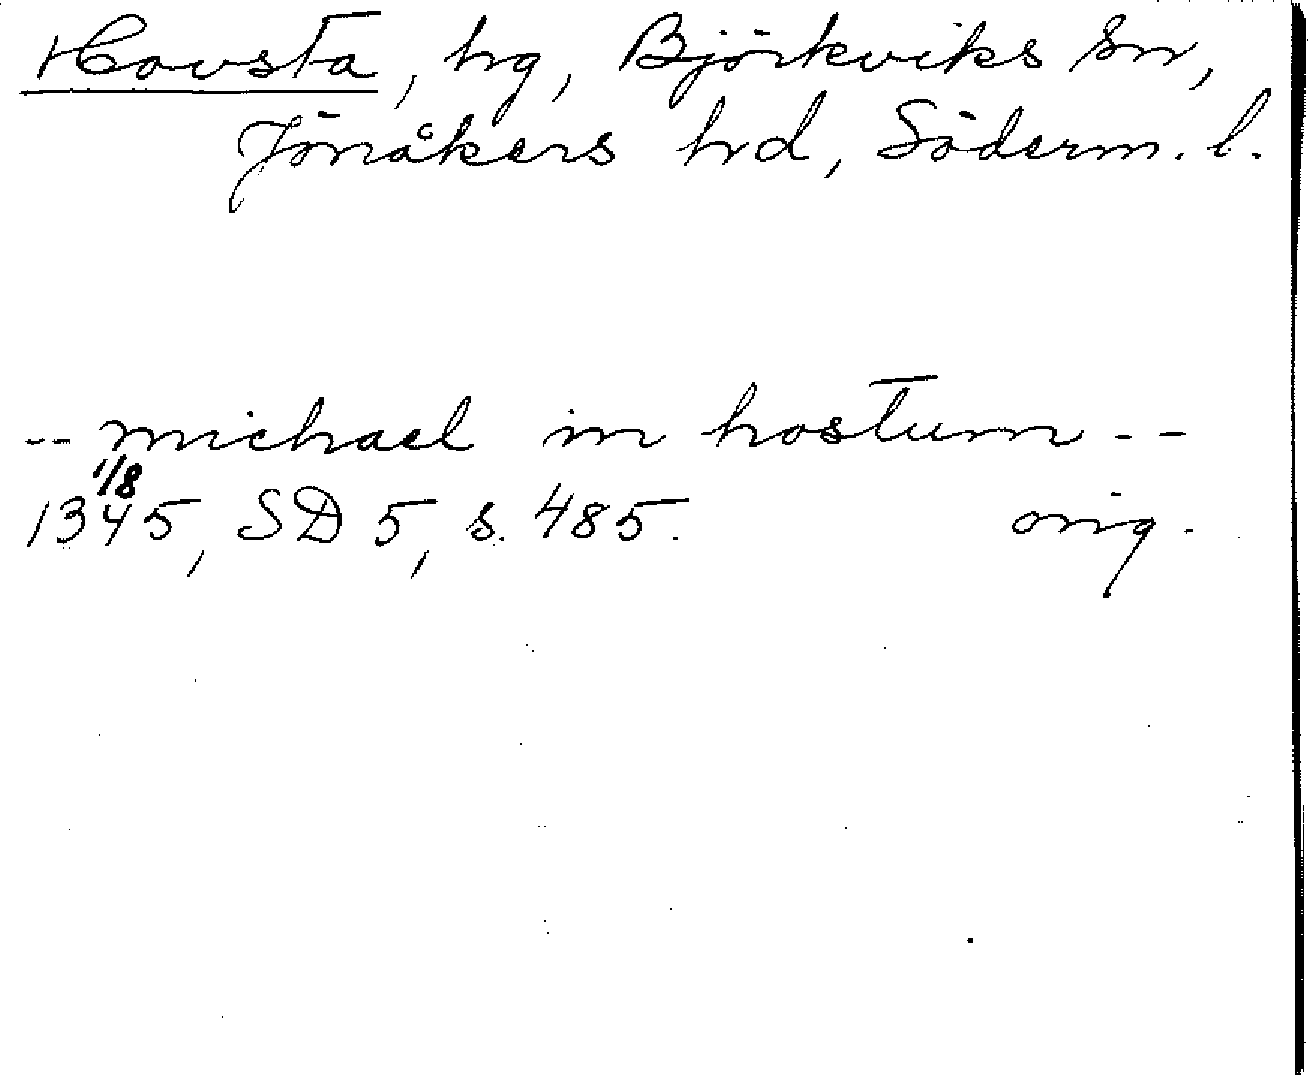 Hovsta, hg, Björkviks sn,
Jönåkers hd, Söderm. l.
-- michael in hostum --
1/8
1345, SD 5, s. 485. orig.